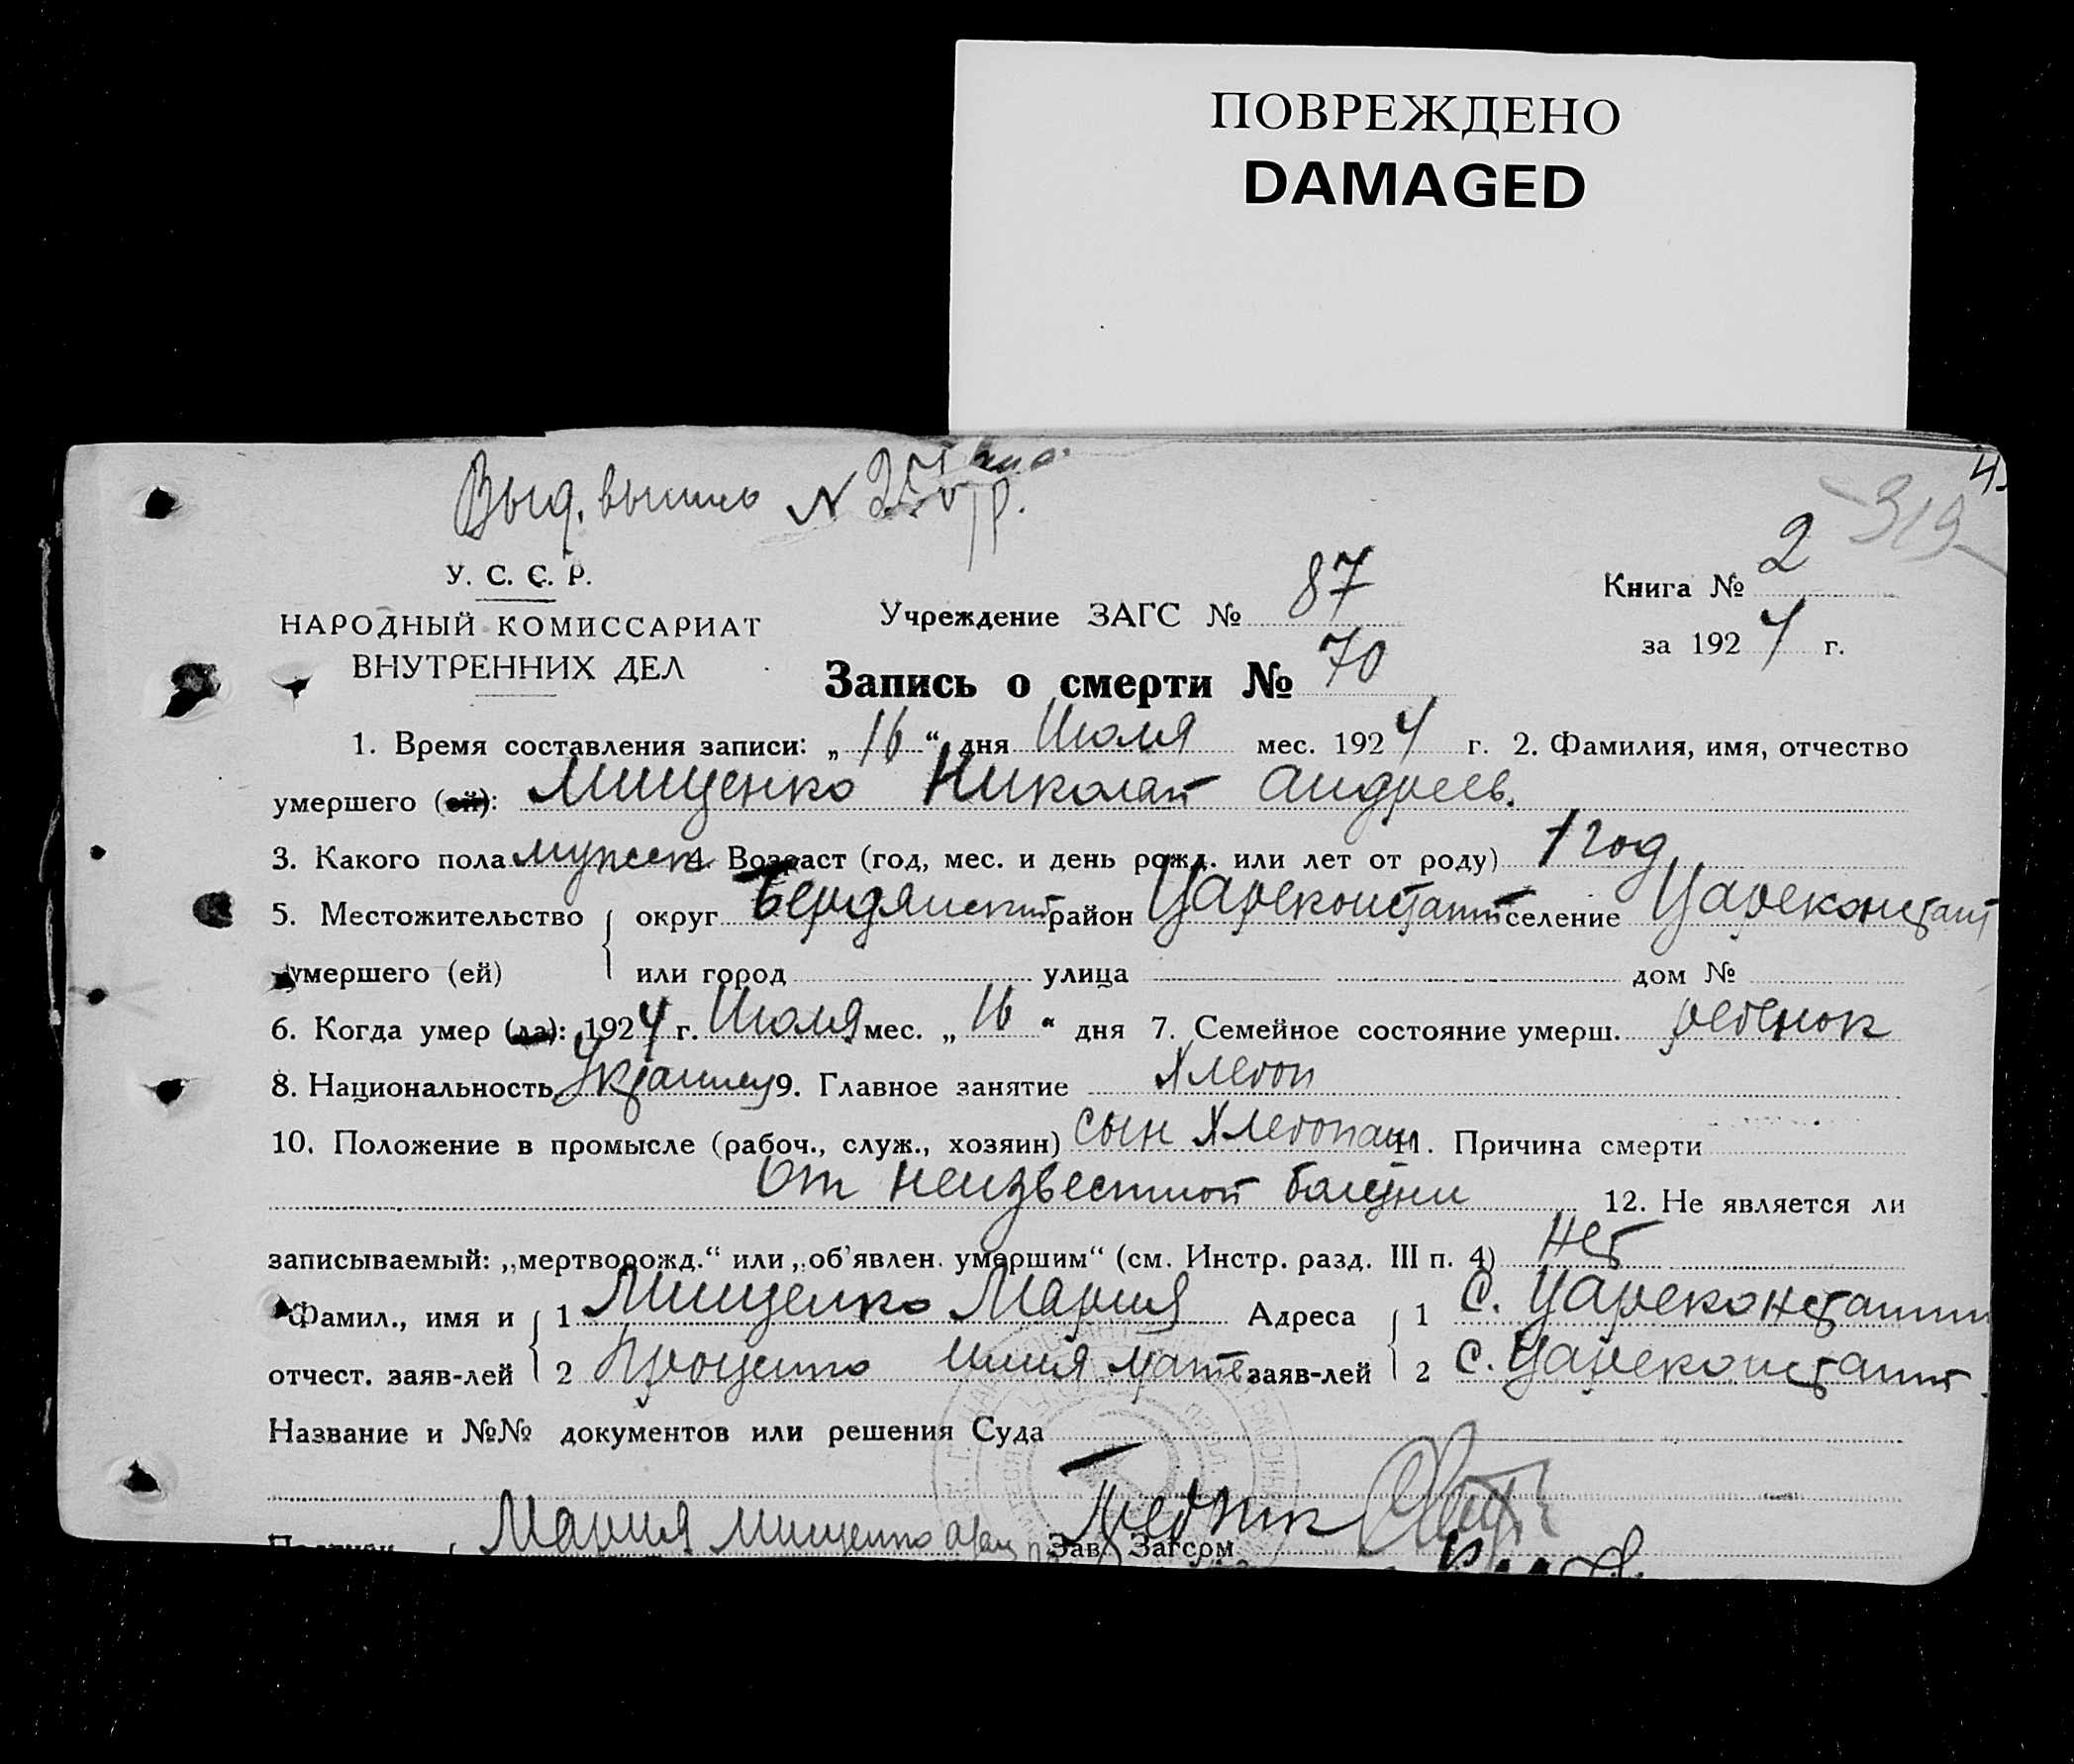 ПОВРЕЖДЕНО
DAMAGED
Выд. N
4
319
У. С. С. Р.
НАРОДНЫЙ КОМИССАРИАТ
ВНУТРЕННИХ ДЕЛ
Учреждение ЗАГС № 87
Книга № 2
за 1924 г.
Запись о смерти № 70
1. Время составления записи: „16“ дня Июля мес. 1924 г. 2. Фамилия, имя, отчество
умершего (ей): Мищенко Николай Андреев.
3. Какого пола мужск 4. Возраст (год, мес. и день рожд. или лет от роду) 1 год
5. Местожительство округ Бердянский район Цареконстант селение Цареконстант
умершего (ей) или город улица дом №
6. Когда умер (ла): 1924 г. Июля мес. „16“ дня 7. Семейное состояние умерш. ребенок
8. Национальность Украинец 9. Главное занятие Хлебоп
10. Положение в промысле (рабоч., служ., хозяин) сын Хлебопаш 11. Причина смерти
От неизвестной болезни 12. Не является ли
записываемый: „мертворожд.“ или „об'явлен. умершим“ (см. Инстр. разд. III п. 4) нет
Фамил., имя и 1 Мищенко Мария Адреса 1 с. Цареконстантин
отчест. заяв-лей 2 Проценко заяв-лей 2 с. Цареконстант
Название и №№ документов или решения Суда
Мария Мищенко Зав. Загсом